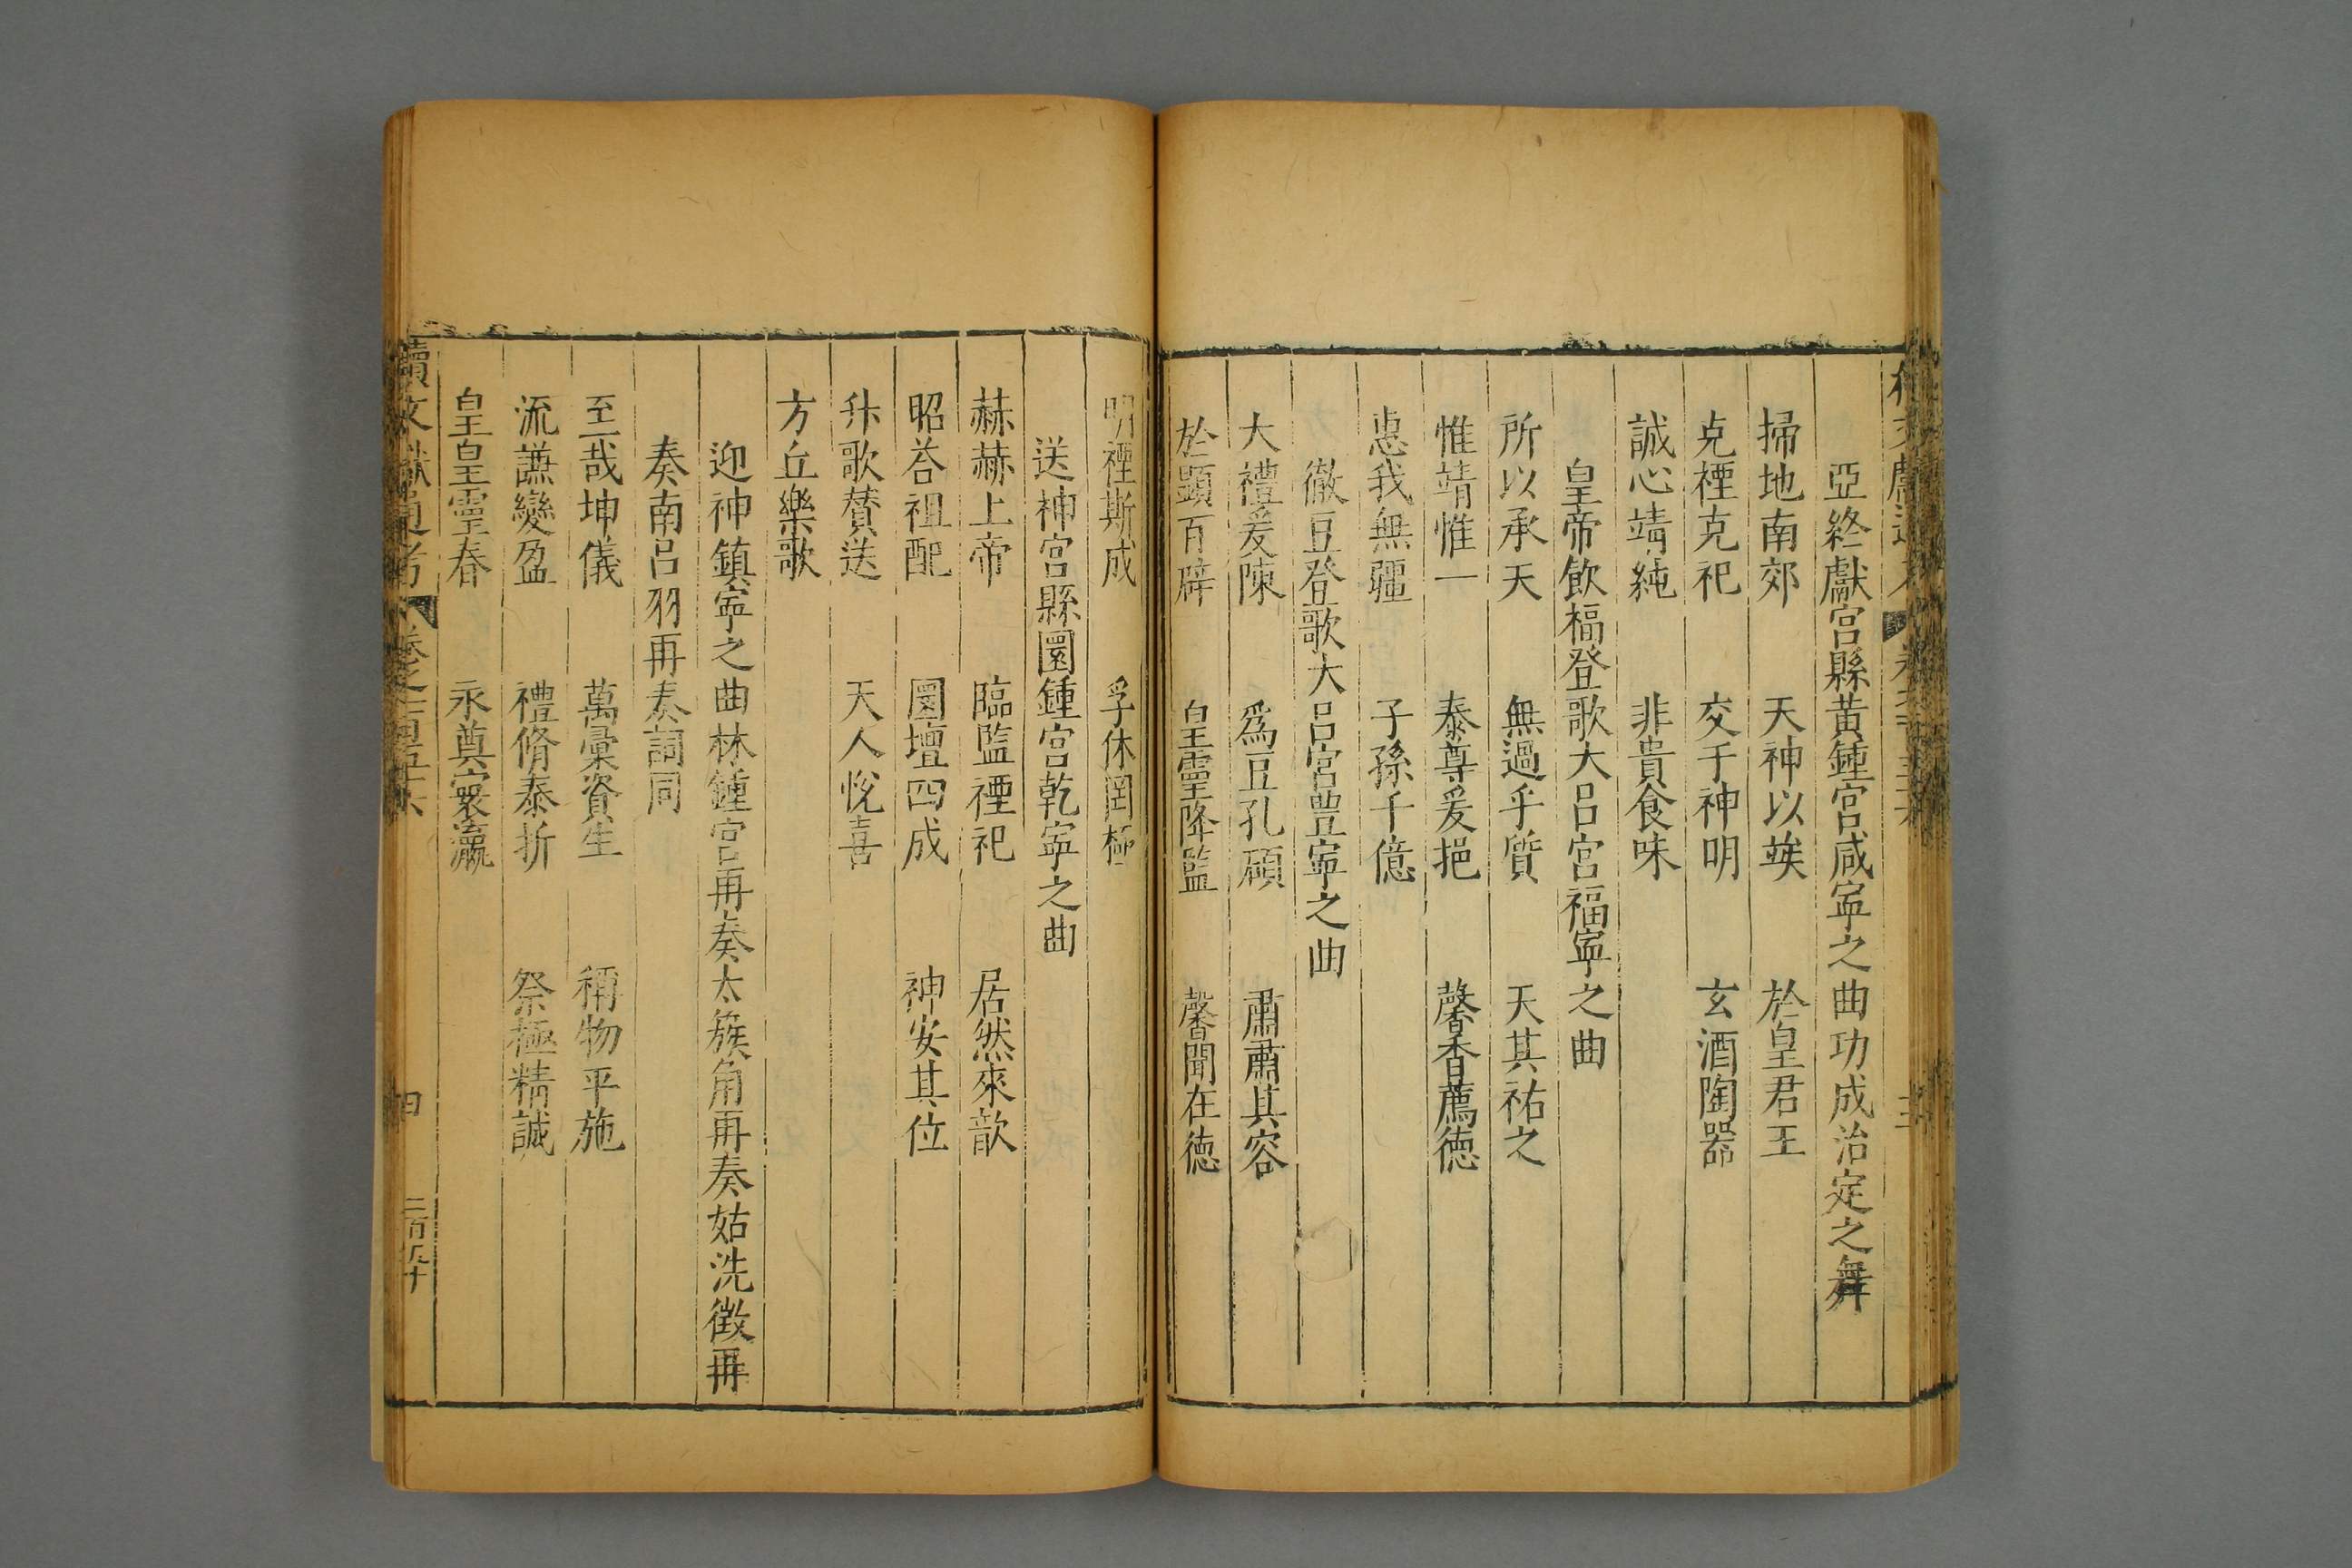 亞終獻宮縣黃鍾宮咸寧之曲功成治定之舞
掃地南郊　天神以竢　於皇君王
克禋克祀　交于神明　玄酒陶器
誠心靖純　非貴食味
皇帝飲福登歌大呂宮福寧之曲
所以承天　無過乎質　天其祐之
惟靖惟一　泰尊爰挹　馨香薦德
惠我無疆　子孫千億
徹豆登歌大呂宮豊寧之曲
大禮爰陳　爲豆孔碩　肅肅其容
於顯百辟　皇靈降監　馨聞在德
明禋斯成　孚休罔極
送神宮縣圜鍾宮乾寧之曲
赫赫上帝　臨監禋祀　居然來歆
昭荅祖配　圜壇四成　神安其位
升歌賛送　天人悅喜
方丘樂歌
迎神鎮寧之曲林鍾宮再奏太簇角再奏姑洗徵再
奏南呂羽再奏詞同
至哉坤儀　萬彚資生　稱物平施
流謙變盈　禮脩泰折　祭極精誠
皇皇靈眷　永奠寰瀛
續文獻通考　卷之一百五十六　四　二百八十